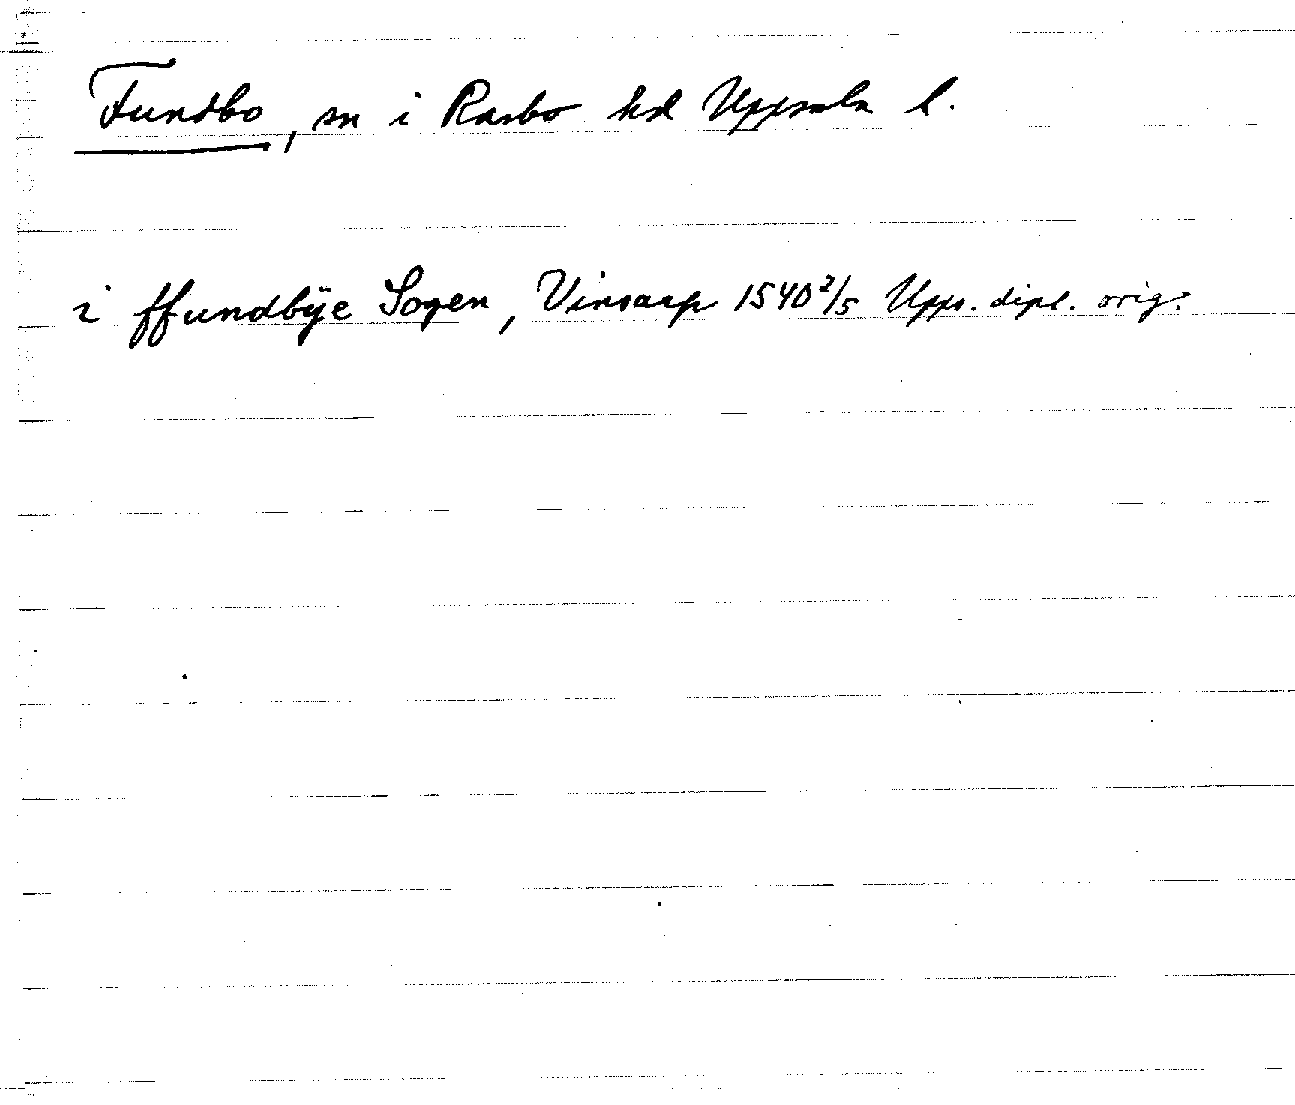 Funbo, sn i Rasbo hd Uppsala l.
i ffundbÿe Sogen, Vinsarp 1540 2/5 Upps. dipl. orig.